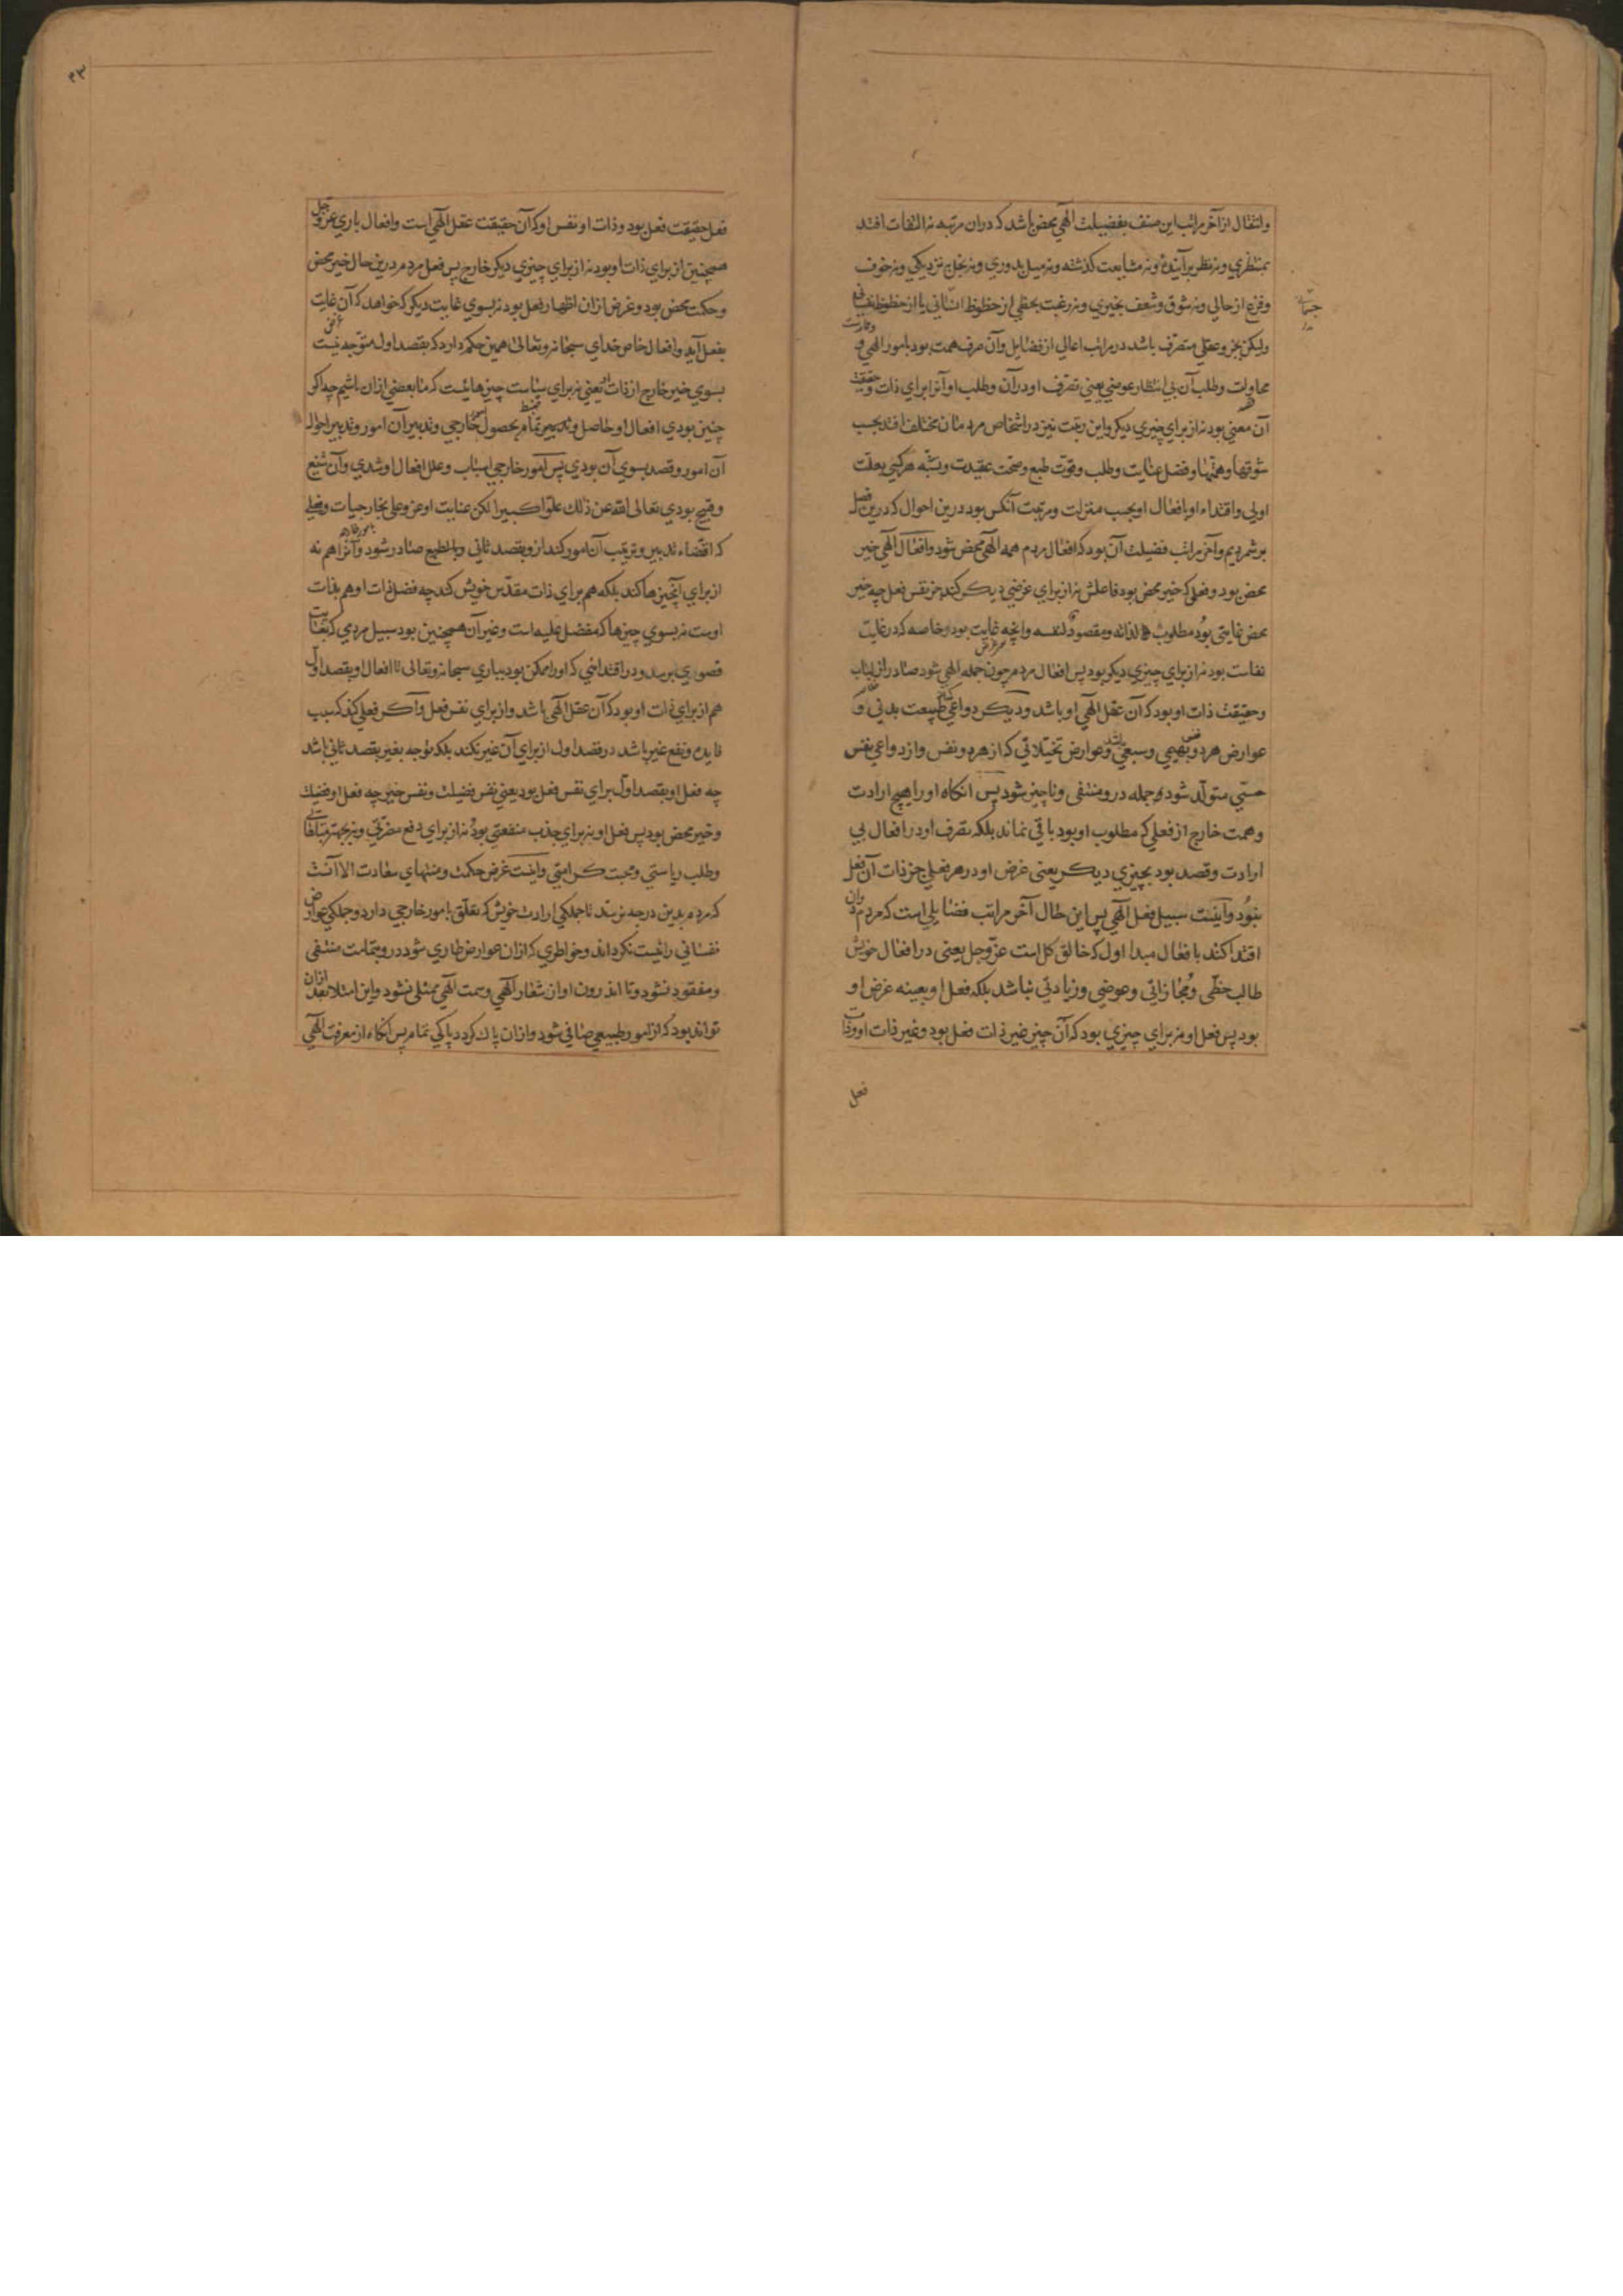 وانتقال از آخر مراتب این صنف بفضیلت الهی محض باشد که دران مرتبه نه التفات افتد
بمنتظری ونه نظر برآینده ونه مشایعت کذشته ونه میل بدوری ونه بخل بنزدیکی ونه خوف
وفزع از حالی ونه شوق وشعف بخیری ونه رغبت بحظی از حظوظ انسانی یا از حظوظ نفسانی
جسمانی
ولیکن بجزو عقلی متصرف باشد در مراتب اعالی از فضایل وآن صرف همت بود بامور الهی و
محاولت وطلب آن بی انتظار عوضی یعنی تصرف او درآن وطلب او آنرا برای ذات وحقیقت
آن معنی بود نه از برای چیزی دیکر واین رتبت نیز در اشخاص مردمان مختلف افتد بحسب
شوقها وهمتها وفضل عنایت وطلب وقوت طبع وصحت عقیدت وتشبه هر کسی بعلت
اولی واقتداء او بافعال او بحسب منزلت ومرتبت آنکس بود درین احوال که درین فصل
برشمردیم وآخر مراتب فضیلت آن بود که افعال مردم همه الهی محض شود وافعال الهی خیر
محض بود وفعلی که خیر محض بود فاعلش نه از برای غرضی دیکر کند جز نفس فعل چه خیر
محض غایتی بود مطلوب لذاته ومقصود لنفسه وانچه غایت بود وخاصه که در غایت
نفاست بود نه از برای چیزی دیکر بود پس افعال مردم چون جمله الهی شود صادر از لباب
وحقیقت ذات او بود که آن عقل الهی او باشد ودیکر دواعی طبیعت بدنی و
عوارض هر دو نفس بهیمی وسبعی وعوارض تخیلاتی که از هر دو نفس واز دواعی نفس
حسی متولد شود جمله درو منتفی وناچیز شود پس آنکاه او را هیچ ارادت
وهمت خارج از فعلی که مطلوب او بود باقی نماند بلکه تصرف او در افعال بی
ارادت وقصد بود بچیزی دیکر یعنی غرض او در هر فعلی جز ذات آن فعل
نبود واینست سبیل فعل الهی پس این حال آخر مراتب فضایلی است که مردم دران
اقتدا کند بافعال مبداء اول که خالق کل است عز وجل یعنی در افعال خویش
طالب حظی ومجازاتی وعوضی وزیادتی نباشد بلکه فعل او بعینه غرض او
بود پس فعل او نه برای چیزی بود که آن چیز غیر ذات فعل بود وغیر ذات او وذات
فعل
۲۳
فعل حقیقت فعل بود وذات او نفس او که آن حقیقت عقل الهی است وافعال باری عز وجل
همچنین از برای ذات او بود نه از برای چیزی دیکر خارج پس فعل مردم درین حال خیر محض
وحکمت محض بود وغرض ازان اظهار فعل بود نه بسوی غایت دیکر که خواهد که آن غایت
بفعل آید وافعال خاص خدای سبحانه وتعالی همین حکم دارد که بقصد اول متوجه نیست
بسوی خیر خارج از ذات او یعنی نه برای سیاست چیزهائیست که ما بعضی ازان باشیم چه اکر
چنین بودی افعال او حاصل وتدبیر تمام بحصول خارجی وتدبیر آن امور وتدبیر احوال
آن امور وقصد بسوی آن بودی پس امور خارجی اسباب وعلل افعال او شدی وآن شنیع
وقبیح بودی تعالی الله عن ذلك علوا کبیرا لکن عنایت او عز وعلی بخارجیات وفعلی
که اقتضاء تدبیر وترتیب آن امور کند ازو بقصد ثانی وبالطبع صادر شود وآنرا هم نه
از برای آنچیزها کند بلکه هم برای ذات مقدس خویش کند چه فضل ذات او هم بذات
اوست نه بسوی چیزها که مفضل علیه است وغیر آن همچنین بود سبیل مردمی که بغایت
قصوی برسد ودر اقتدائی که او را ممکن بود بباری سبحانه وتعالی تا افعال او بقصد اول
هم از برای ذات او بود که آن عقل الهی باشد واز برای نفس فعل واکر فعلی کند که سبب
فایده ونفع غیر باشد در قصد اول از برای آن غیر نکند بلکه توجه بغیر بقصد ثانی باشد
چه فعل او بقصد اول برای نفس فعل بود یعنی نفس فضیلت ونفس خیر چه فعل او فضیلت
وخیر محض بود پس فعل او نه برای جذب منفعتی بود نه از برای دفع مضرتی ونه بجهت مباهاتی
وطلب ریاستی ومحبت کرامتی واینست غرض حکمت ومنتهای سعادت الا آنست
که مردم بدین درجه نرسد تا جملکی ارادت خویش که تعلق بامور خارجی دارد وجملکی عوارض
نفسانی را نیست نکرداند وخواطری که ازان عوارض طاری شود درو بتمامت منتفی
ومفقود نشود وتا اندرون او از شعار الهی وسمت الهی ممتلی نشود واین امتلا بعد ازان
تواند بود که از امور طبیعی صافی شود وازان پاك کردد پاکی تمام پس انکاه از معرفت الهی